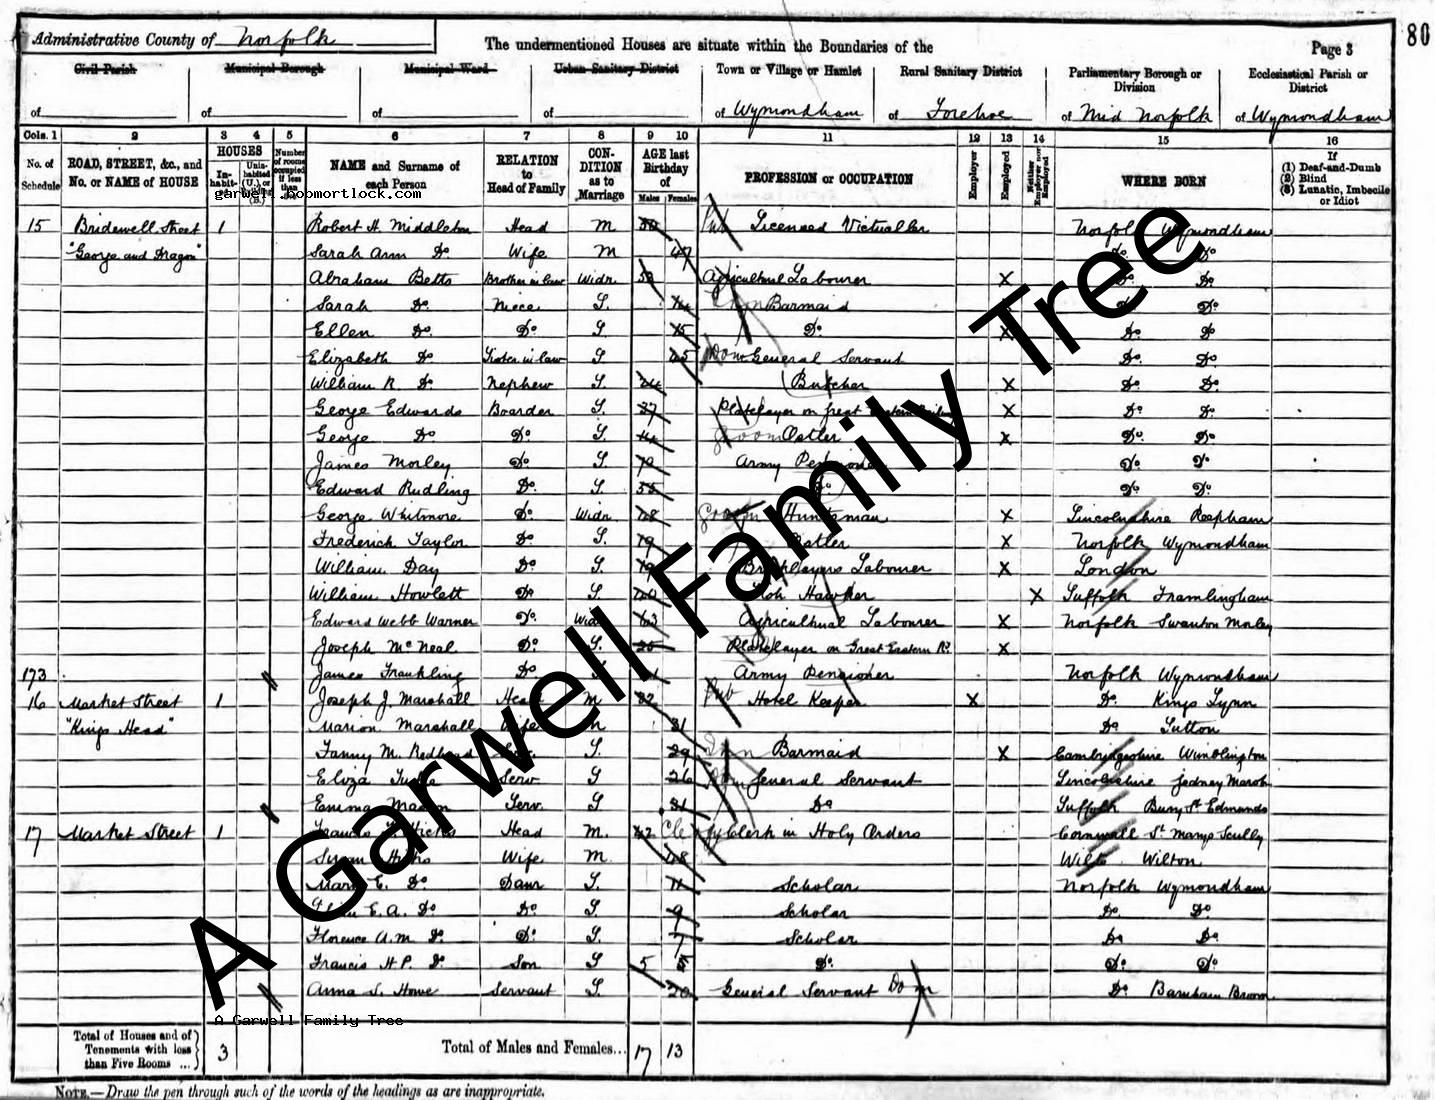 80
Administrative County of Norfolk
The undermentioned Houses are situate within the Boundaries of the
Page 3
Civil Parish Municipal Borough Municipal Ward Urban Sanitary District Town or Village or Hamlet Rural Sanitary District Parliamentary Borough or Division Ecclesiastical Parish or District
of of of of of Wymondham of Forehoe of Mid Norfolk of Wymondham
Cols. 1 2 3 4 5 6 7 8 9 10 11 12 13 14 15 16
No. of Schedule ROAD, STREET, &c., and No. or NAME of HOUSE HOUSES Inhabited Uninhabited (U.), or Building (B.) Number of rooms occupied if less than five NAME and Surname of each Person RELATION to Head of Family CONDITION as to Marriage AGE last Birthday of Males Females PROFESSION or OCCUPATION Employer Employed Neither Employer nor Employed WHERE BORN If (1) Deaf-and-Dumb (2) Blind (3) Lunatic, Imbecile or Idiot
garwell.bobmortlock.com
15 Bridewell Street 1 Robert H. Middleton Head M 50 Pub Licensed Victualler Norfolk Wymondham
"George and Dragon" Sarah Ann Do Wife M 47 Do Do
Abraham Betts Brother in law Widr. Agricultural Labourer X Do Do
Sarah Do. Niece S. Barmaid Do Do.
Ellen Do. Do S. 15 Do. X Do. Do
Elizabeth Do Sister in law S 45 Dom General Servant Do. Do.
William R. Do. Nephew S. 24 Butcher X Do Do.
George Edwards Boarder S. 37 Platelayer on Great Eastern X Do. Do.
George Do Do. S. Groom Ostler X Do. Do.
James Morley Do. S. Army Pensioner Do. Do.
Edward Rudling Do. S. 55 Do. Do. Do.
George Whitmore Do. Widr. 48 Groom Huntsman X Lincolnshire Reepham
Frederick Taylor Do S. 19 Ostler X Norfolk Wymondham
William Day Do. S. 19 Bricklayers Labourer X London
William Howlett Do. S. 40 Hawker X Suffolk Framlingham
Edward Webb Warner Do. Widr 63 Agricultural Labourer X Norfolk Swanton Morley
Joseph McNeal Do. S. Platelayer on Great Eastern Ry. X
173 James Frankling Do S Army Pensioner Norfolk Wymondham
16 Market Street 1 Joseph J. Marshall Head M 32 Pub Hotel Keeper X Do. Kings Lynn
"Kings Head" Marion Marshall Wife M 31 Do Sutton
Fanny M. Redhead Serv. S. 29 Inn Barmaid X Cambridgeshire Wimblington
Eliza Serv S 26 Dom General Servant Lincolnshire Gedney Marsh
Emma Serv. S 21 Do Suffolk Bury St Edmunds
17 Market Street 1 Francis Hicks Head M. 42 Clergy Clerk in Holy Orders Cornwall St. Marys Scilly
Susan Hicks Wife M 48 Wilts Wilton
Mary E. Do. Daur S. 11 Scholar Norfolk Wymondham
E. A. Do Do. S. 9 Scholar Do. Do.
Florence A. M Do. Do. S. 7 Scholar Do Do
Francis H P. Do. Son S 5 Do. Do. Do.
Anna S. Howe Servant S. 20 General Servant Dom Do. Barnham Broom
A Garwell Family Tree
Total of Houses and of Tenements with less than Five Rooms ... 3 Total of Males and Females... 17 13
NOTE.—Draw the pen through such of the words of the headings as are inappropriate.
A Garwell Family Tree